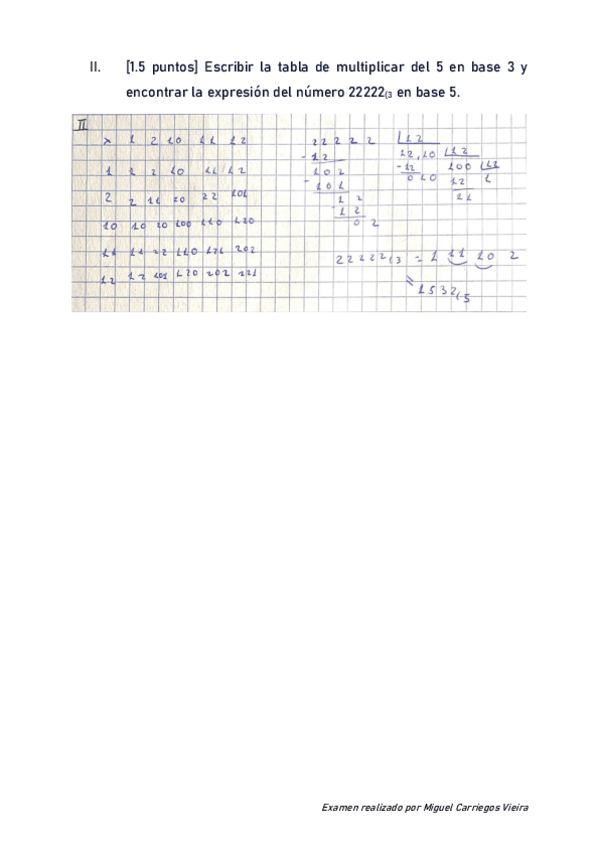 II. [1.5 puntos] Escribir la tabla de multiplicar del 5 en base 3 y
encontrar la expresión del número 22222(3 en base 5.
II
x 1 2 10 11 12
1 1 2 10 11 12
2 2 11 20 22 101
10 10 20 100 110 120
11 11 22 110 121 202
12 12 101 120 202 221
22222 12
-12 12,10 12
102 -12 100 12
-101 010 12 1
12 21
-12
02
22222(3 = 1 11 10 2
= 1532(5
Examen realizado por Miguel Carriegos Vieira